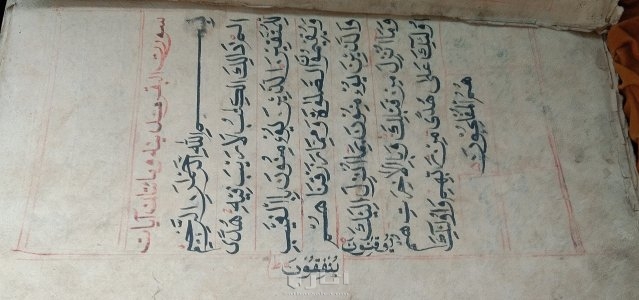 سورت البقره مدينه ومائتان آيات
بسم الله الرحمن الرحيم
الم ذَٰلِكَ الْكِتٰبُ لَا رَيْبَ فِيهِ هُدًى
لِلْمُتَّقِينَ الَّذِينَ يُؤْمِنُونَ بِالْغَيْبِ
وَيُقِيمُونَ الصَّلٰوةَ وَمِمَّا رَزَقْنَاهُمْ
يُنْفِقُونَ
وَالَّذِينَ يُؤْمِنُونَ بِمَا أُنْزِلَ إِلَيْكَ
وَمَا أُنْزِلَ مِنْ قَبْلِكَ وَبِالْآخِرَتِ هُمْ
أُولٰئِكَ عَلَىٰ هُدًى مِنْ رَبِّهِمْ وَأُولٰئِكَ
هُمُ الْمُفْلِحُونَ